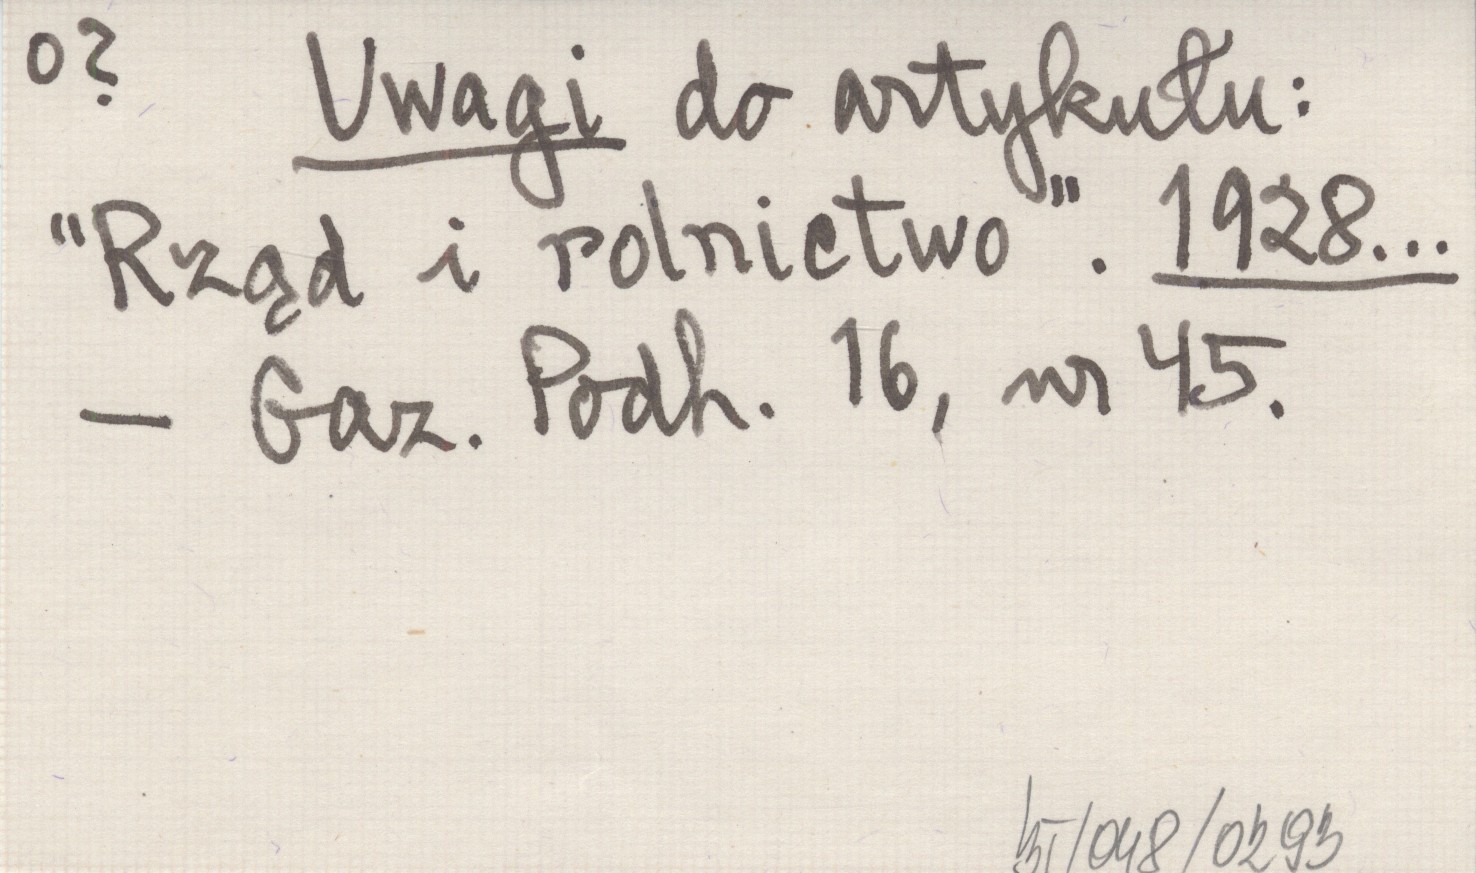 o? Uwagi do artykułu:
"Rząd i rolnictwo". 1928...
— Gaz. Podh. 16, nr 45.
/048/0293